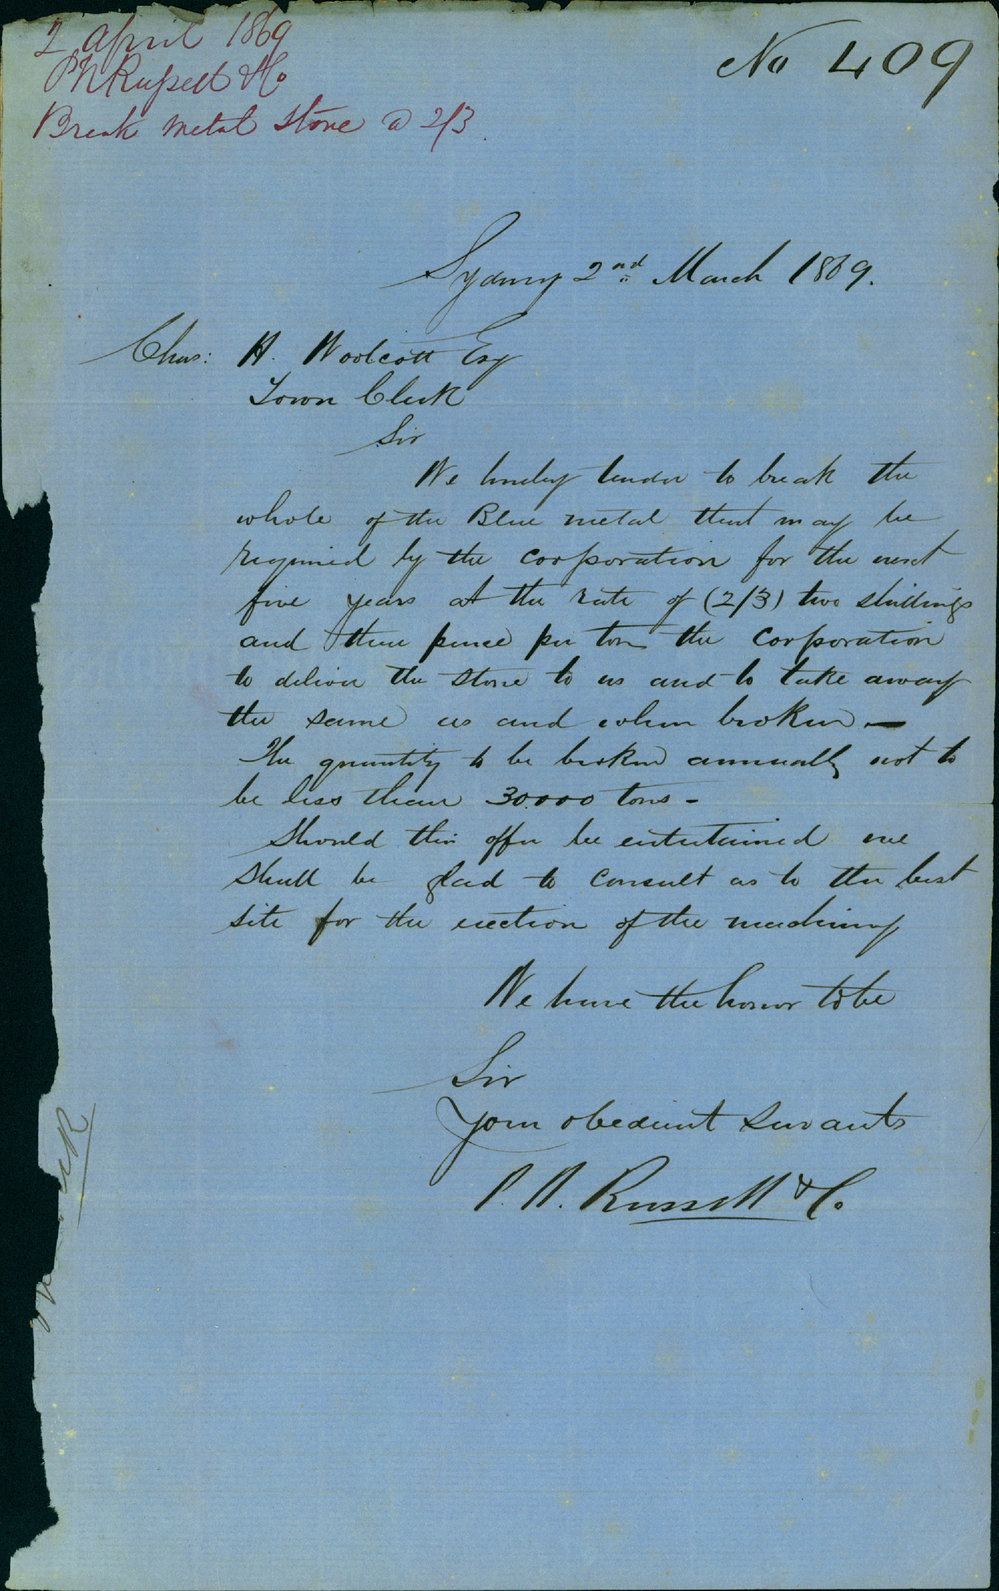 2 April 1869
P N Russell & Co
Break metal stone @ 2/3
No 409
Sydney 2nd March 1869.
Chas: H. Woolcott Esq
Town Clerk
Sir
We hereby tender to break the
whole of the Blue metal that may be
required by the corporation for the next
five years at the rate of (2/3) two shillings
and three pence per ton the corporation
to deliver the stone to us and to take away
the same as and when broken —
The quantity to be broken annually not to
be less than 30.000 tons -
Should this offer be entertained we
shall be glad to consult as to the best
site for the erection of the machinery
We have the honor to be
Sir
Your obedient servants
P. N. Russell & Co